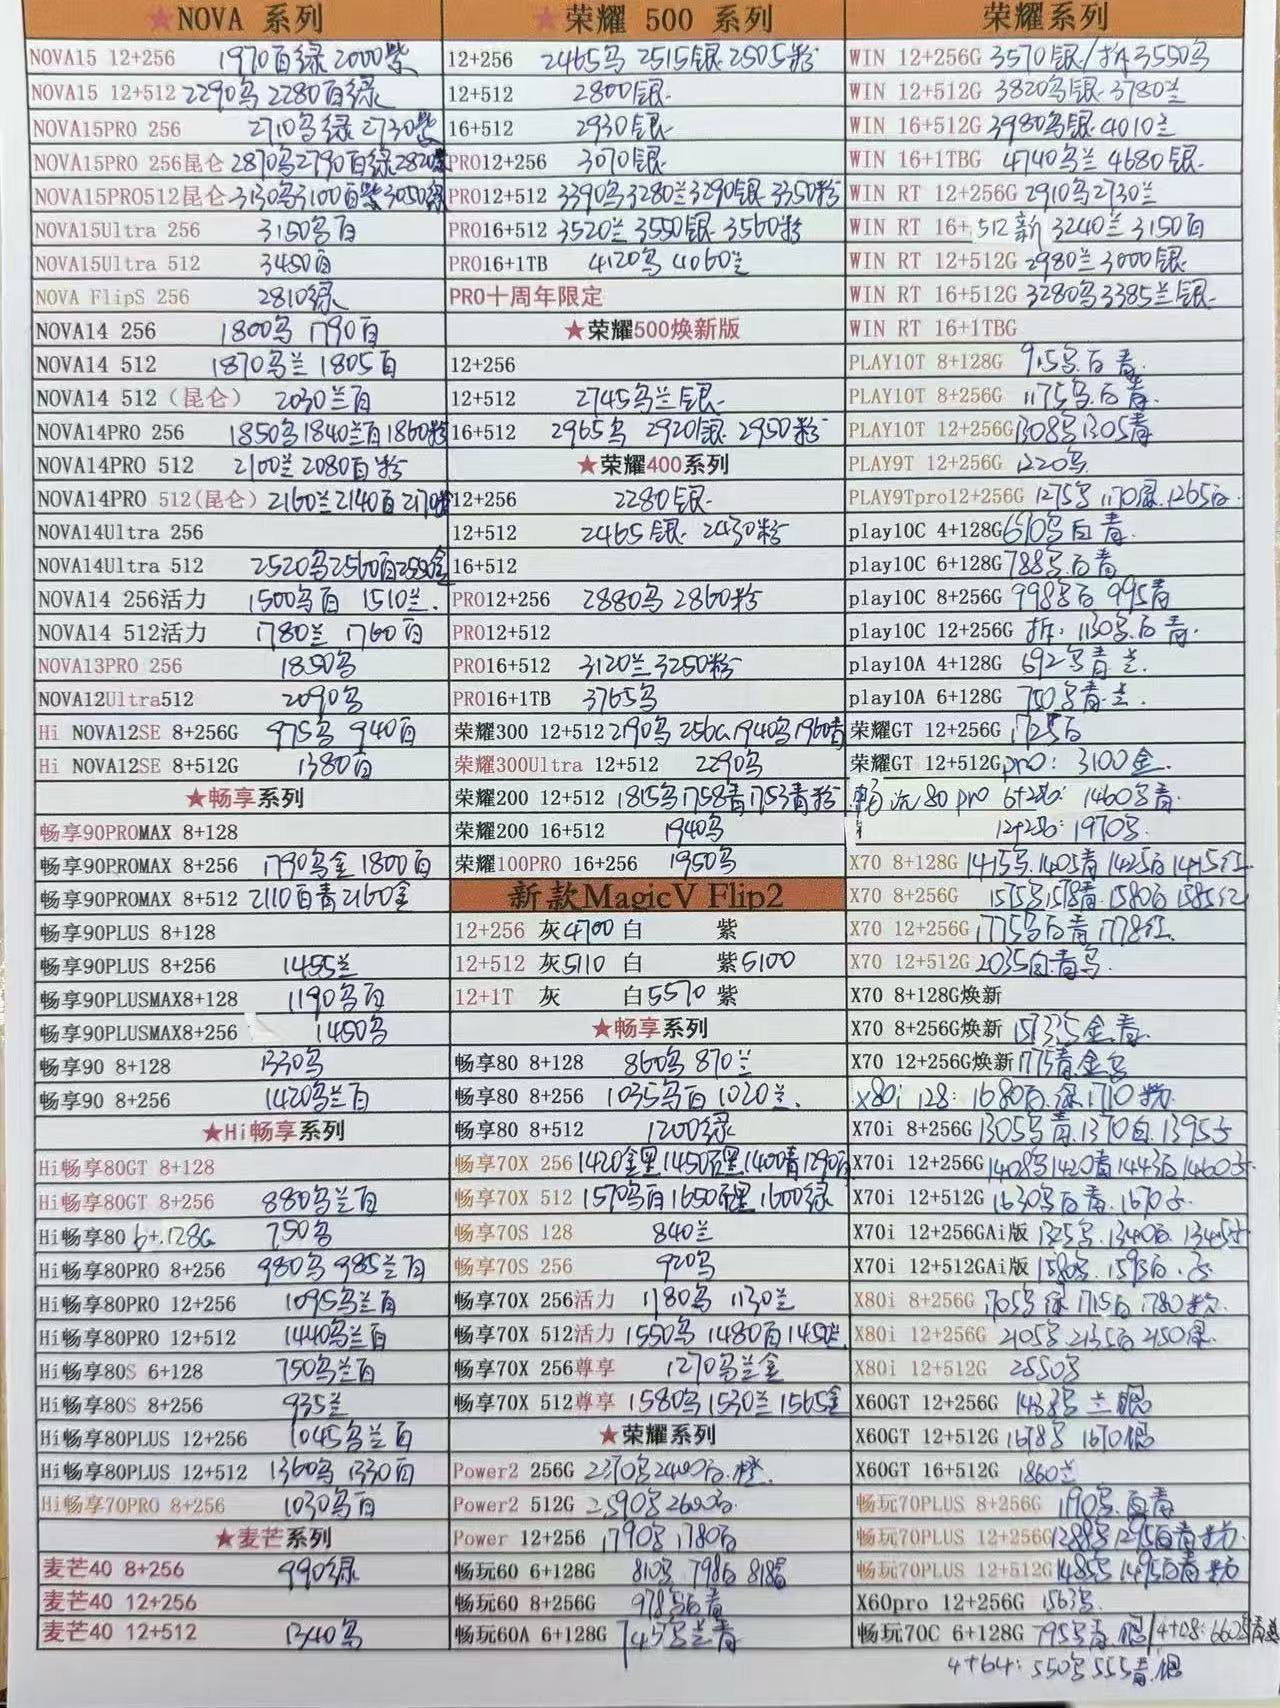 ★NOVA 系列
NOVA15 12+256 1970百绿 2000紫
NOVA15 12+512 2290乌 2280百绿
NOVA15PRO 256 2710乌绿 2730紫
NOVA15PRO 256昆仑 2870乌2790百绿2820紫
NOVA15PRO512昆仑 3130乌3100百紫3050绿
NOVA15Ultra 256 3150乌百
NOVA15Ultra 512 3450百
NOVA FlipS 256 2810绿
NOVA14 256 1800乌 1790百
NOVA14 512 1870乌兰 1805百
NOVA14 512（昆仑） 2030兰百
NOVA14PRO 256 1850乌1840兰百1860粉
NOVA14PRO 512 2100兰 2080百粉
NOVA14PRO 512(昆仑) 2160兰2140百2170粉
NOVA14Ultra 256
NOVA14Ultra 512 2520乌2560百2550金
NOVA14 256活力 1500乌百 1510兰.
NOVA14 512活力 1780兰 1760百
NOVA13PRO 256 1850乌
NOVA12Ultra512 2090乌
Hi NOVA12SE 8+256G 975乌 940百
Hi NOVA12SE 8+512G 1380百
★畅享系列
畅享90PROMAX 8+128
畅享90PROMAX 8+256 1790乌金 1800百
畅享90PROMAX 8+512 2110百青2160金
畅享90PLUS 8+128
畅享90PLUS 8+256 1455兰
畅享90PLUSMAX8+128 1190乌百
畅享90PLUSMAX8+256 1450乌
畅享90 8+128 1330乌
畅享90 8+256 1420乌兰百
★Hi畅享系列
Hi畅享80GT 8+128
Hi畅享80GT 8+256 880乌兰百
Hi畅享80 6+128G 750乌
Hi畅享80PRO 8+256 980乌985兰百
Hi畅享80PRO 12+256 1095乌兰百
Hi畅享80PRO 12+512 1440乌兰百
Hi畅享80S 6+128 750乌兰百
Hi畅享80S 8+256 935兰
Hi畅享80PLUS 12+256 1045乌兰百
Hi畅享80PLUS 12+512 1360乌 1330百
Hi畅享70PRO 8+256 1030乌百
★麦芒系列
麦芒40 8+256 990绿
麦芒40 12+256
麦芒40 12+512 1340乌
★荣耀 500 系列
12+256 2465乌 2515银 2505粉
12+512 2800银.
16+512 2930银.
PRO12+256 3070银.
PRO12+512 3390乌3280兰3290银 3350粉
PRO16+512 3520兰 3550银 3560粉
PRO16+1TB 4120乌 4060兰
PRO十周年限定
★荣耀500焕新版
12+256
12+512 2745乌兰银.
16+512 2965乌 2920银 2950粉
★荣耀400系列
12+256 2280银.
12+512 2465银. 2430粉
16+512
PRO12+256 2880乌 2860粉
PRO12+512
PRO16+512 3120兰3250粉
PRO16+1TB 3765乌
荣耀300 12+512 2190乌 256G 1940乌1960青
荣耀300Ultra 12+512 2290乌
荣耀200 12+512 1815乌1758青1753青粉
荣耀200 16+512 1940乌
荣耀100PRO 16+256 1950乌
新款MagicV Flip2
12+256 灰4700 白 紫
12+512 灰5110 白 紫5100
12+1T 灰 白5570 紫
★畅享系列
畅享80 8+128 860乌 870兰
畅享80 8+256 1035乌百 1020兰.
畅享80 8+512 1200绿
畅享70X 256 1420金黑1450石黑1400青1290百
畅享70X 512 1570乌百1650石黑1600绿
畅享70S 128 840兰
畅享70S 256 920乌
畅享70X 256活力 1180乌 1130兰
畅享70X 512活力 1550乌 1480百1450兰
畅享70X 256尊享 1270乌兰金
畅享70X 512尊享 1580乌1530兰 1565金
★荣耀系列
Power2 256G 2370乌2400百.橙.
Power2 512G 2590乌2600百.
Power 12+256 1790乌1780百
畅玩60 6+128G 810乌 798百 818青
畅玩60 8+256G 978乌百青
畅玩60A 6+128G 745乌兰青
荣耀系列
WIN 12+256G 3570银/拆3550乌
WIN 12+512G 3820乌银.3780兰
WIN 16+512G 3980乌银.4010兰
WIN 16+1TBG 4740乌兰 4680银.
WIN RT 12+256G 2910乌2730兰
WIN RT 16+512新 3240兰 3150百
WIN RT 12+512G 2980兰 3000银.
WIN RT 16+512G 3280乌3385兰银.
WIN RT 16+1TBG
PLAY10T 8+128G 915乌.百.青.
PLAY10T 8+256G 1175乌.百青.
PLAY10T 12+256G 1308乌1305青
PLAY9T 12+256G 1220乌.
PLAY9Tpro12+256G 1275乌 1170绿.1265百.
play10C 4+128G 670乌百青.
play10C 6+128G 788乌.百青
play10C 8+256G 998乌百 995青
play10C 12+256G 拆: 1130乌.百青.
play10A 4+128G 692乌青兰.
play10A 6+128G 750乌青.兰.
荣耀GT 12+256G 1725百
荣耀GT 12+512Gpro: 3100金.
畅玩80 pro 6+256: 1460乌青.
12+256: 1970乌.
X70 8+128G 1415乌.1405青 1425百1415红.
X70 8+256G 1555乌1578青.1580百 1585红
X70 12+256G 1775乌百青 1778红.
X70 12+512G 2035百.青乌.
X70 8+128G焕新
X70 8+256G焕新 15735金.青.
X70 12+256G焕新 1775青.金乌
x80i 128: 1680百.绿.1710粉
X70i 8+256G 1305乌青.1370百.1395子
X70i 12+256G 1408乌1420青1443百1460子.
X70i 12+512G 1630乌百青.1670子.
X70i 12+256GAi版 1325乌.1340百.1345子
X70i 12+512GAi版 1580乌.1593百.子
X80i 8+256G 1705乌绿 1715百1780粉.
X80i 12+256G 2105乌2135百2150绿.
X80i 12+512G 2550乌
X60GT 12+256G 1438乌 兰银
X60GT 12+512G 1678乌 1670银
X60GT 16+512G 1860兰
畅玩70PLUS 8+256G 1190乌.百青
畅玩70PLUS 12+256G 1288乌1295百青粉
畅玩70PLUS 12+512G 1485乌1495百青粉
X60pro 12+256G 1563乌.
畅玩70C 6+128G 795乌青.银/4+128: 660乌青
4+64: 550乌555青.银